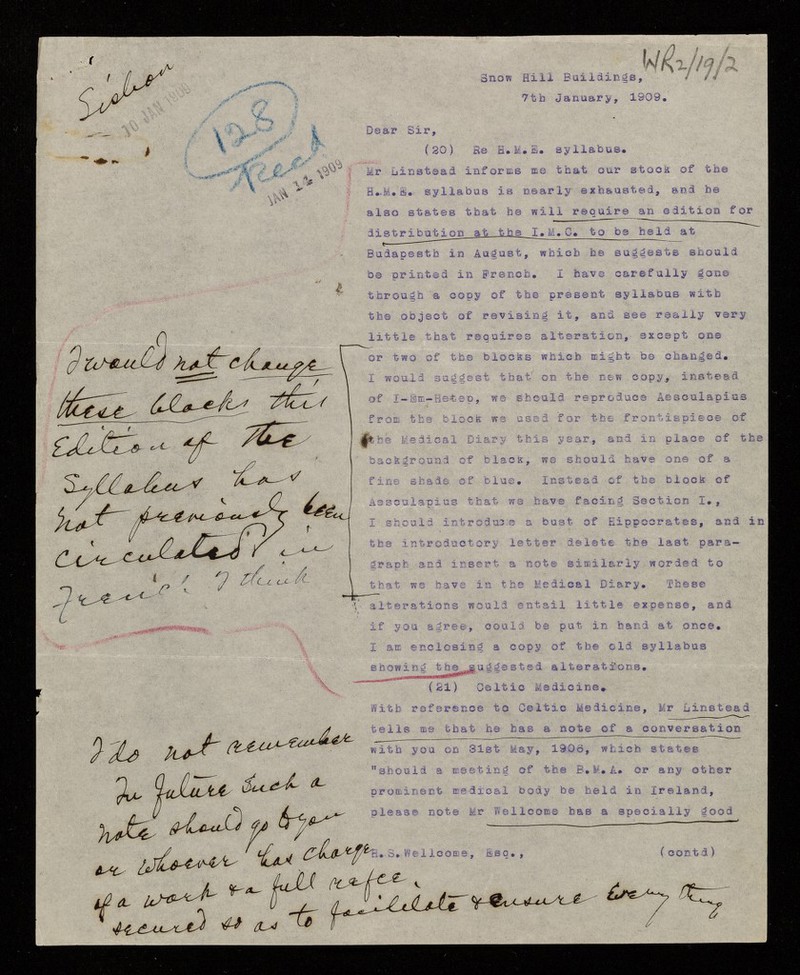 WR2/19/2
Lisbon
10 JAN 1909
128
Recd
JAN 11 1909
Snow Hill Buildings,
7th January, 1909.
Dear Sir,
(20) Re H.M.E. syllabus.
Mr Linstead informs me that our stock of the
H.M.E. syllabus is nearly exhausted, and he
also states that he will require an edition for
distribution at the I.M.C. to be held at
Budapesth in August, which he suggests should
be printed in French. I have carefully gone
through a copy of the present syllabus with
the object of revising it, and see really very
little that requires alteration, except one
or two of the blocks which might be changed.
I would suggest that on the new copy, instead
of I-Em-Hetep, we should reproduce Aesculapius
from the block we used for the frontispiece of
the Medical Diary this year, and in place of the
background of black, we should have one of a
fine shade of blue. Instead of the block of
Aesculapius that we have facing Section I.,
I should introduce a bust of Hippocrates, and in
the introductory letter delete the last para-
graph and insert a note similarly worded to
that we have in the Medical Diary. These
alterations would entail little expense, and
if you agree, could be put in hand at once.
I am enclosing a copy of the old syllabus
showing the suggested alterations.
I would not change
these blocks this
Edition of the
Syllabus has
not previously been
circulated in
French I think
(21) Celtic Medicine.
With reference to Celtic Medicine, Mr Linstead
tells me that he has a note of a conversation
with you on 31st May, 1906, which states
"should a meeting of the B.M.A. or any other
prominent medical body be held in Ireland,
please note Mr Wellcome has a specially good
I do not remember
In future such a
note should go to you
or whoever has charge
of a work & a full
secured so as to facilitate & ensure Everything
H.S.Wellcome, Esq., (contd)